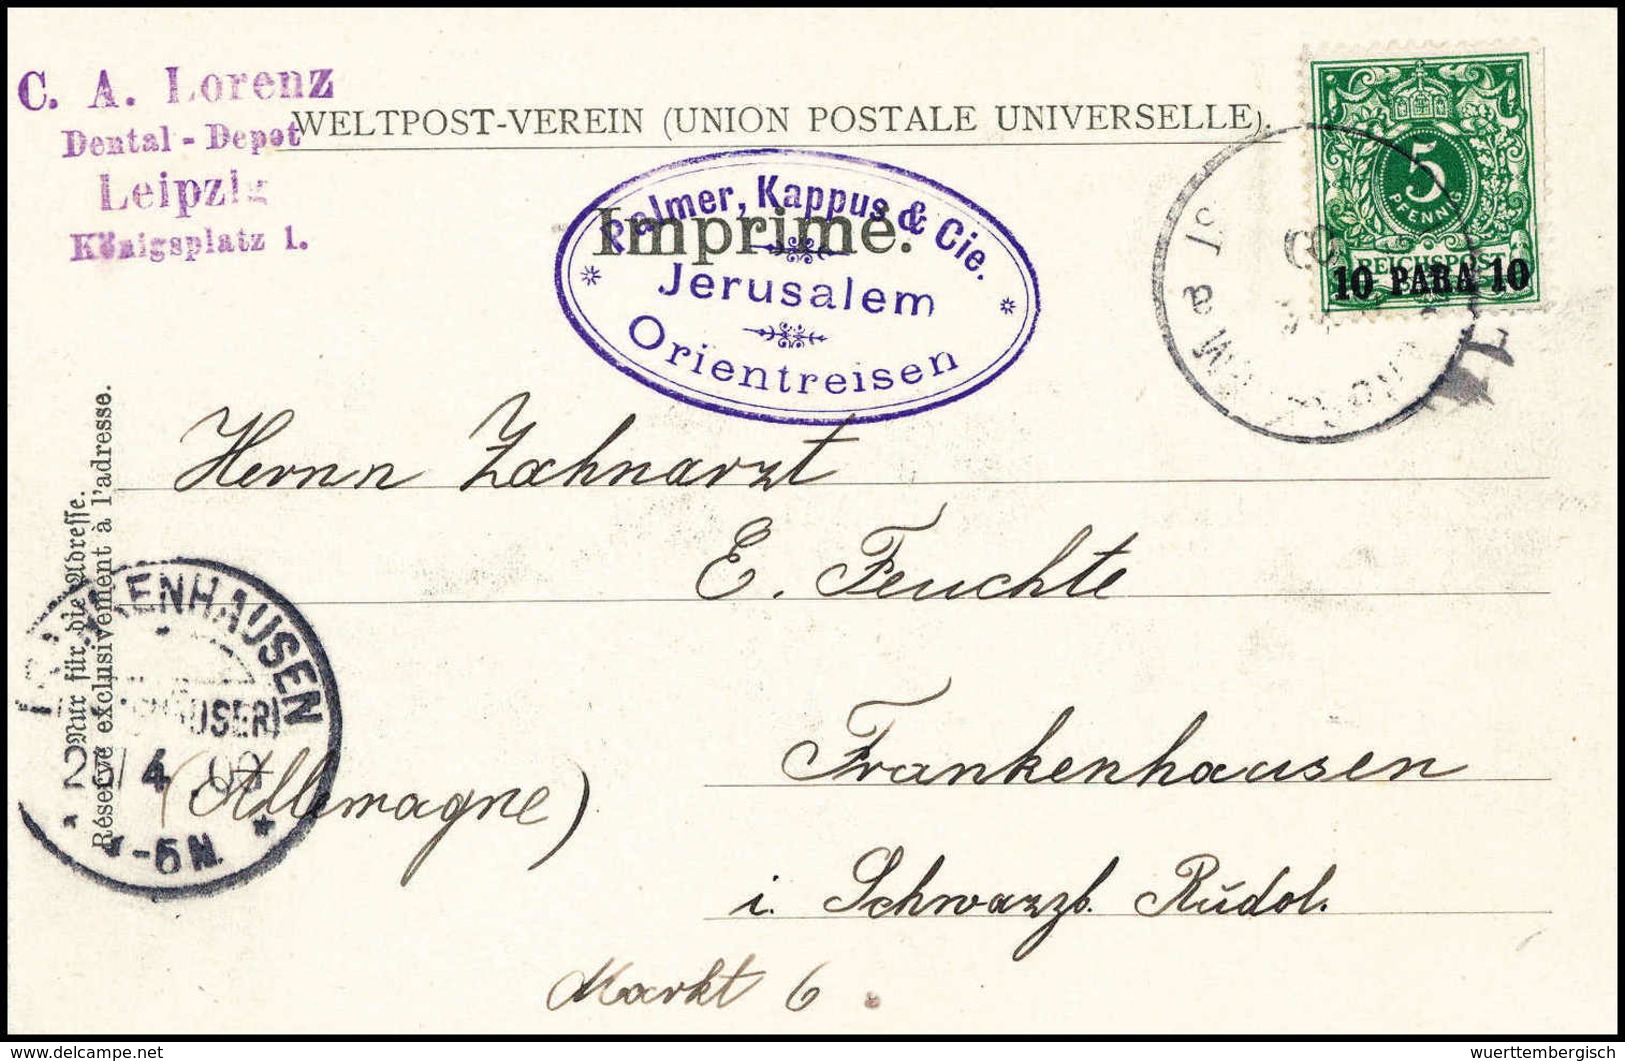 C. A. Lorenz
Dental-Depot
Leipzig
Königsplatz 1.
WELTPOST-VEREIN (UNION POSTALE UNIVERSELLE).
Imprimé.
Palmer, Kappus & Cie.
Jerusalem
Orientreisen
5
PFENNIG
REICHSPOST
10 PARA 10
Herrn Zahnarzt
E. Feuchte
Frankenhausen
(Allemagne)
i. Schwarzb. Rudol.
Markt 6.
Nur für die Adresse.
Réservé exclusivement à l'adresse.
FRANKENHAUSEN
4
-5 N.
www.delcampe.net
wuerttembergisch